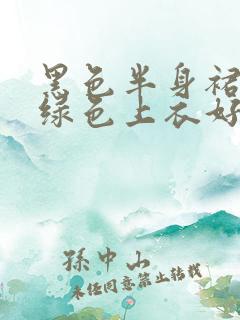 黑色半身裙
绿色上衣好
孫中山
未经同意禁止转载